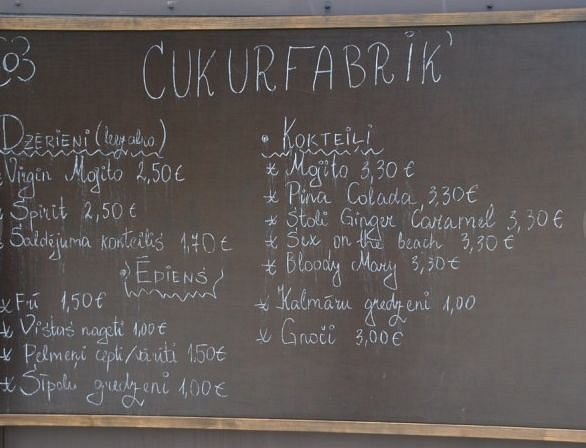 CUKURFABRIK'
DZĒRIENI (bezalko)
Virgin Mojito 2,50€
Spirit 2,50€
Saldējuma kokteilis 1,70€
ĒDIENS
Frī 1,50€
Vistas nageti 1,00€
Pelmeņi cepti/vārīti 1.50€
Sīpolu gredzeni 1,00€
KOKTEIĻI
Mojito 3,30€
Pina Colada 3,30€
Stoli Ginger Caramel 3,30€
Sex on the beach 3,30€
Bloody Mary 3,30€
Kalmāru gredzeni 1,00
Gnoči 3,00€